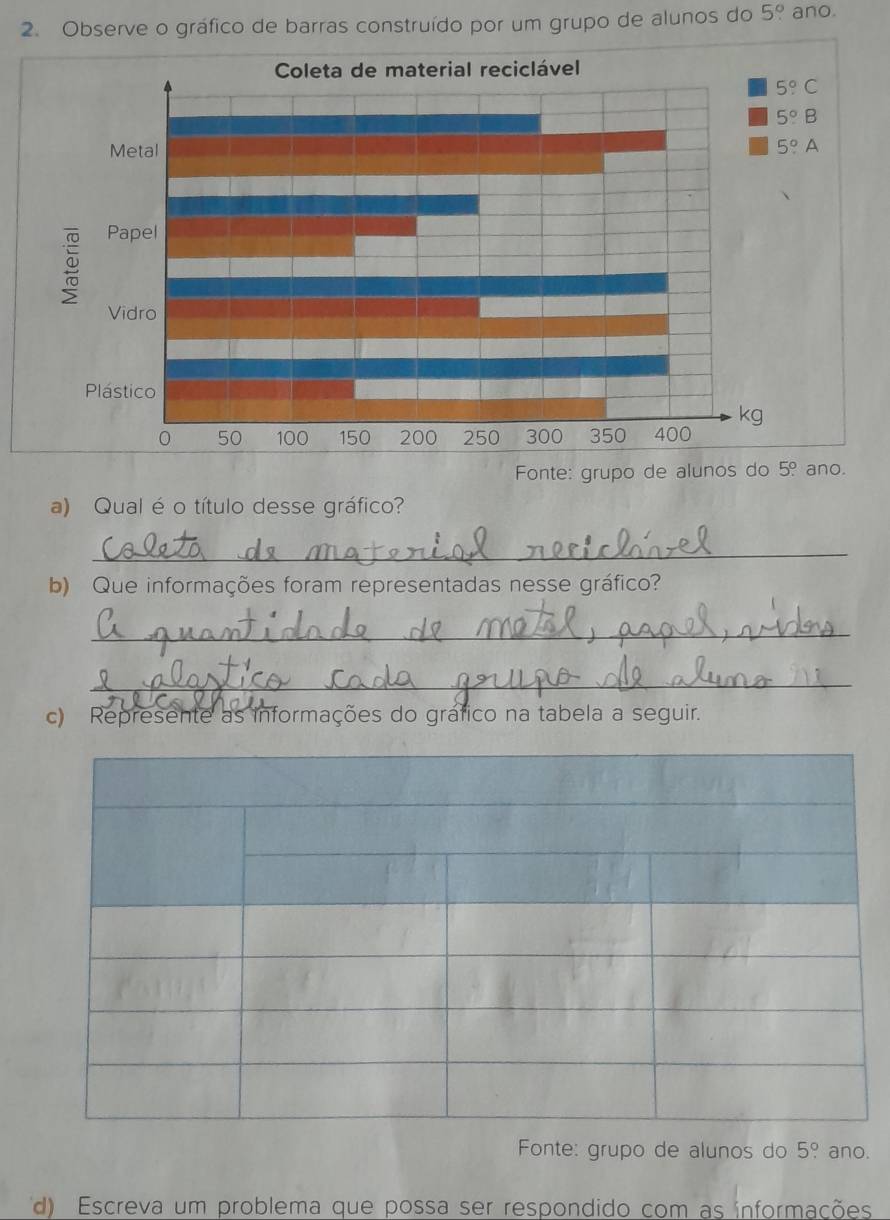 2. Observe o gráfico de barras construído por um grupo de alunos do 5º ano.
Coleta de material reciclável
5º C
5º B
5º A
Material
Metal
Papel
Vidro
Plástico
kg
0 50 100 150 200 250 300 350 400
Fonte: grupo de alunos do 5º ano.
a) Qual é o título desse gráfico?
Coleta de material reciclável
b) Que informações foram representadas nesse gráfico?
a quantidade de metal, papel, vidro
e plastico cada grupo de aluno
recolheu
c) Represente as informações do gráfico na tabela a seguir.
Fonte: grupo de alunos do 5º ano.
d) Escreva um problema que possa ser respondido com as informações